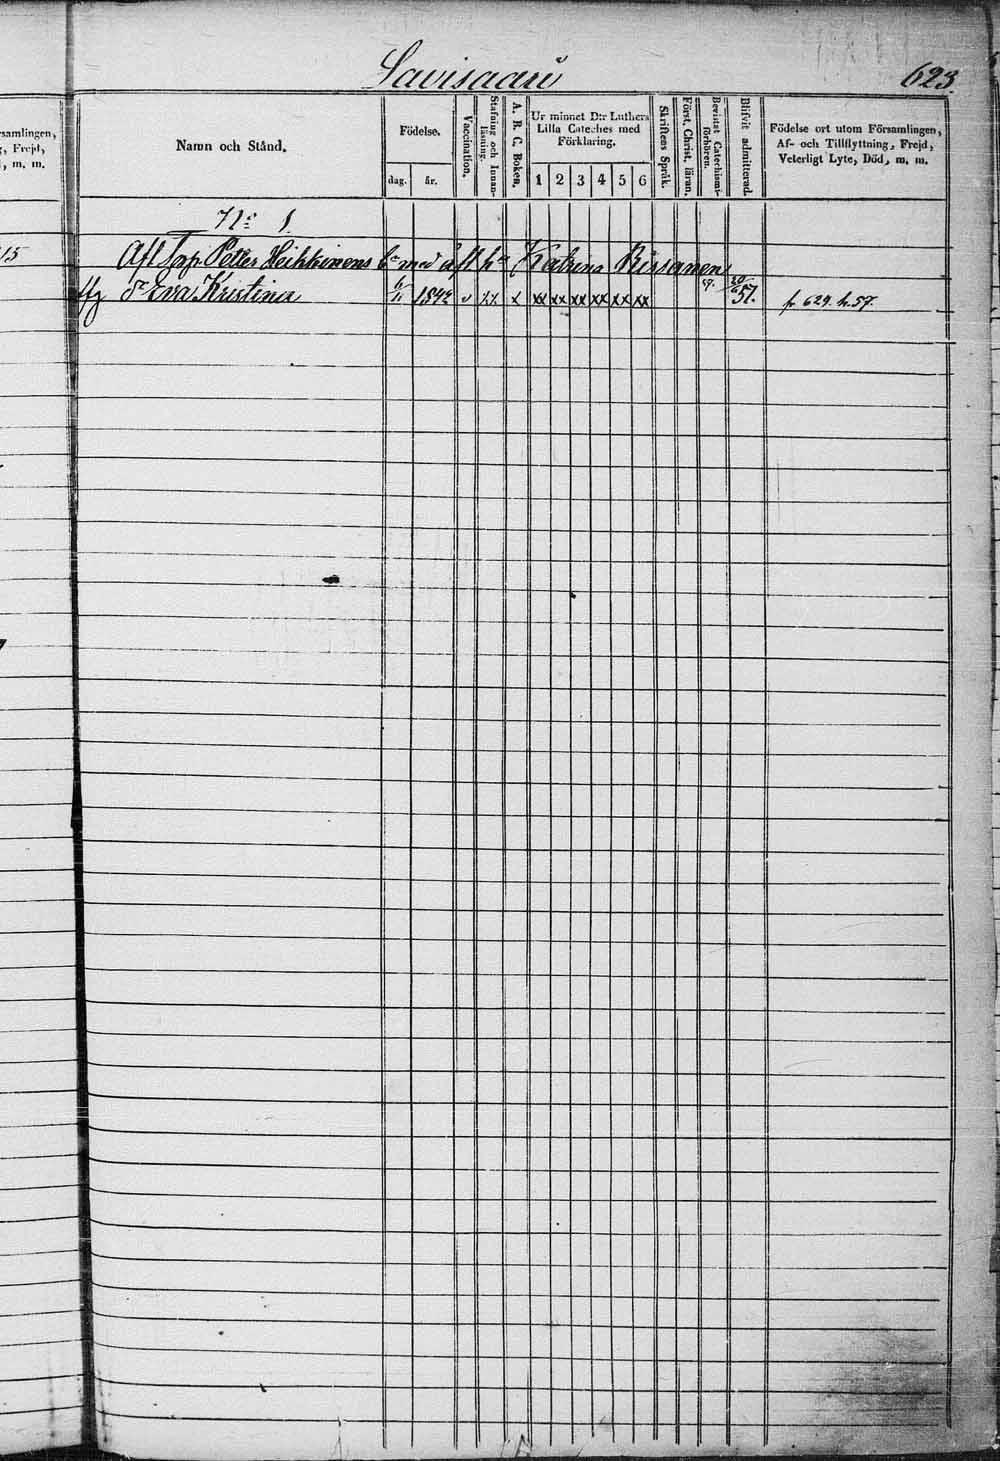 Savisaari
623.
samlingen,
, Frejd,
, m. m.
Namn och Stånd.
Födelse.
dag.
år.
Vaccination.
Stafning och Innanläsning.
A. B. C. Boken.
Ur minnet D:r Luthers
Lilla Cateches med
Förklaring.
1 2 3 4 5 6
Skriftens Språk.
Först. Christ. läran.
Bevistat Catechismiförhören.
Blifvit admitterad.
Födelse ort utom Församlingen,
Af- och Tillflyttning, Frejd,
Veterligt Lyte, Död, m. m.
No 1
15
Aft Torp. Petter Heikkinens bn med aft hu Katrina Rissanen
Dr Eva Kristina 1842 x x xx xx xx xx xx xx 57. 20 57. fr 629. h. 57.